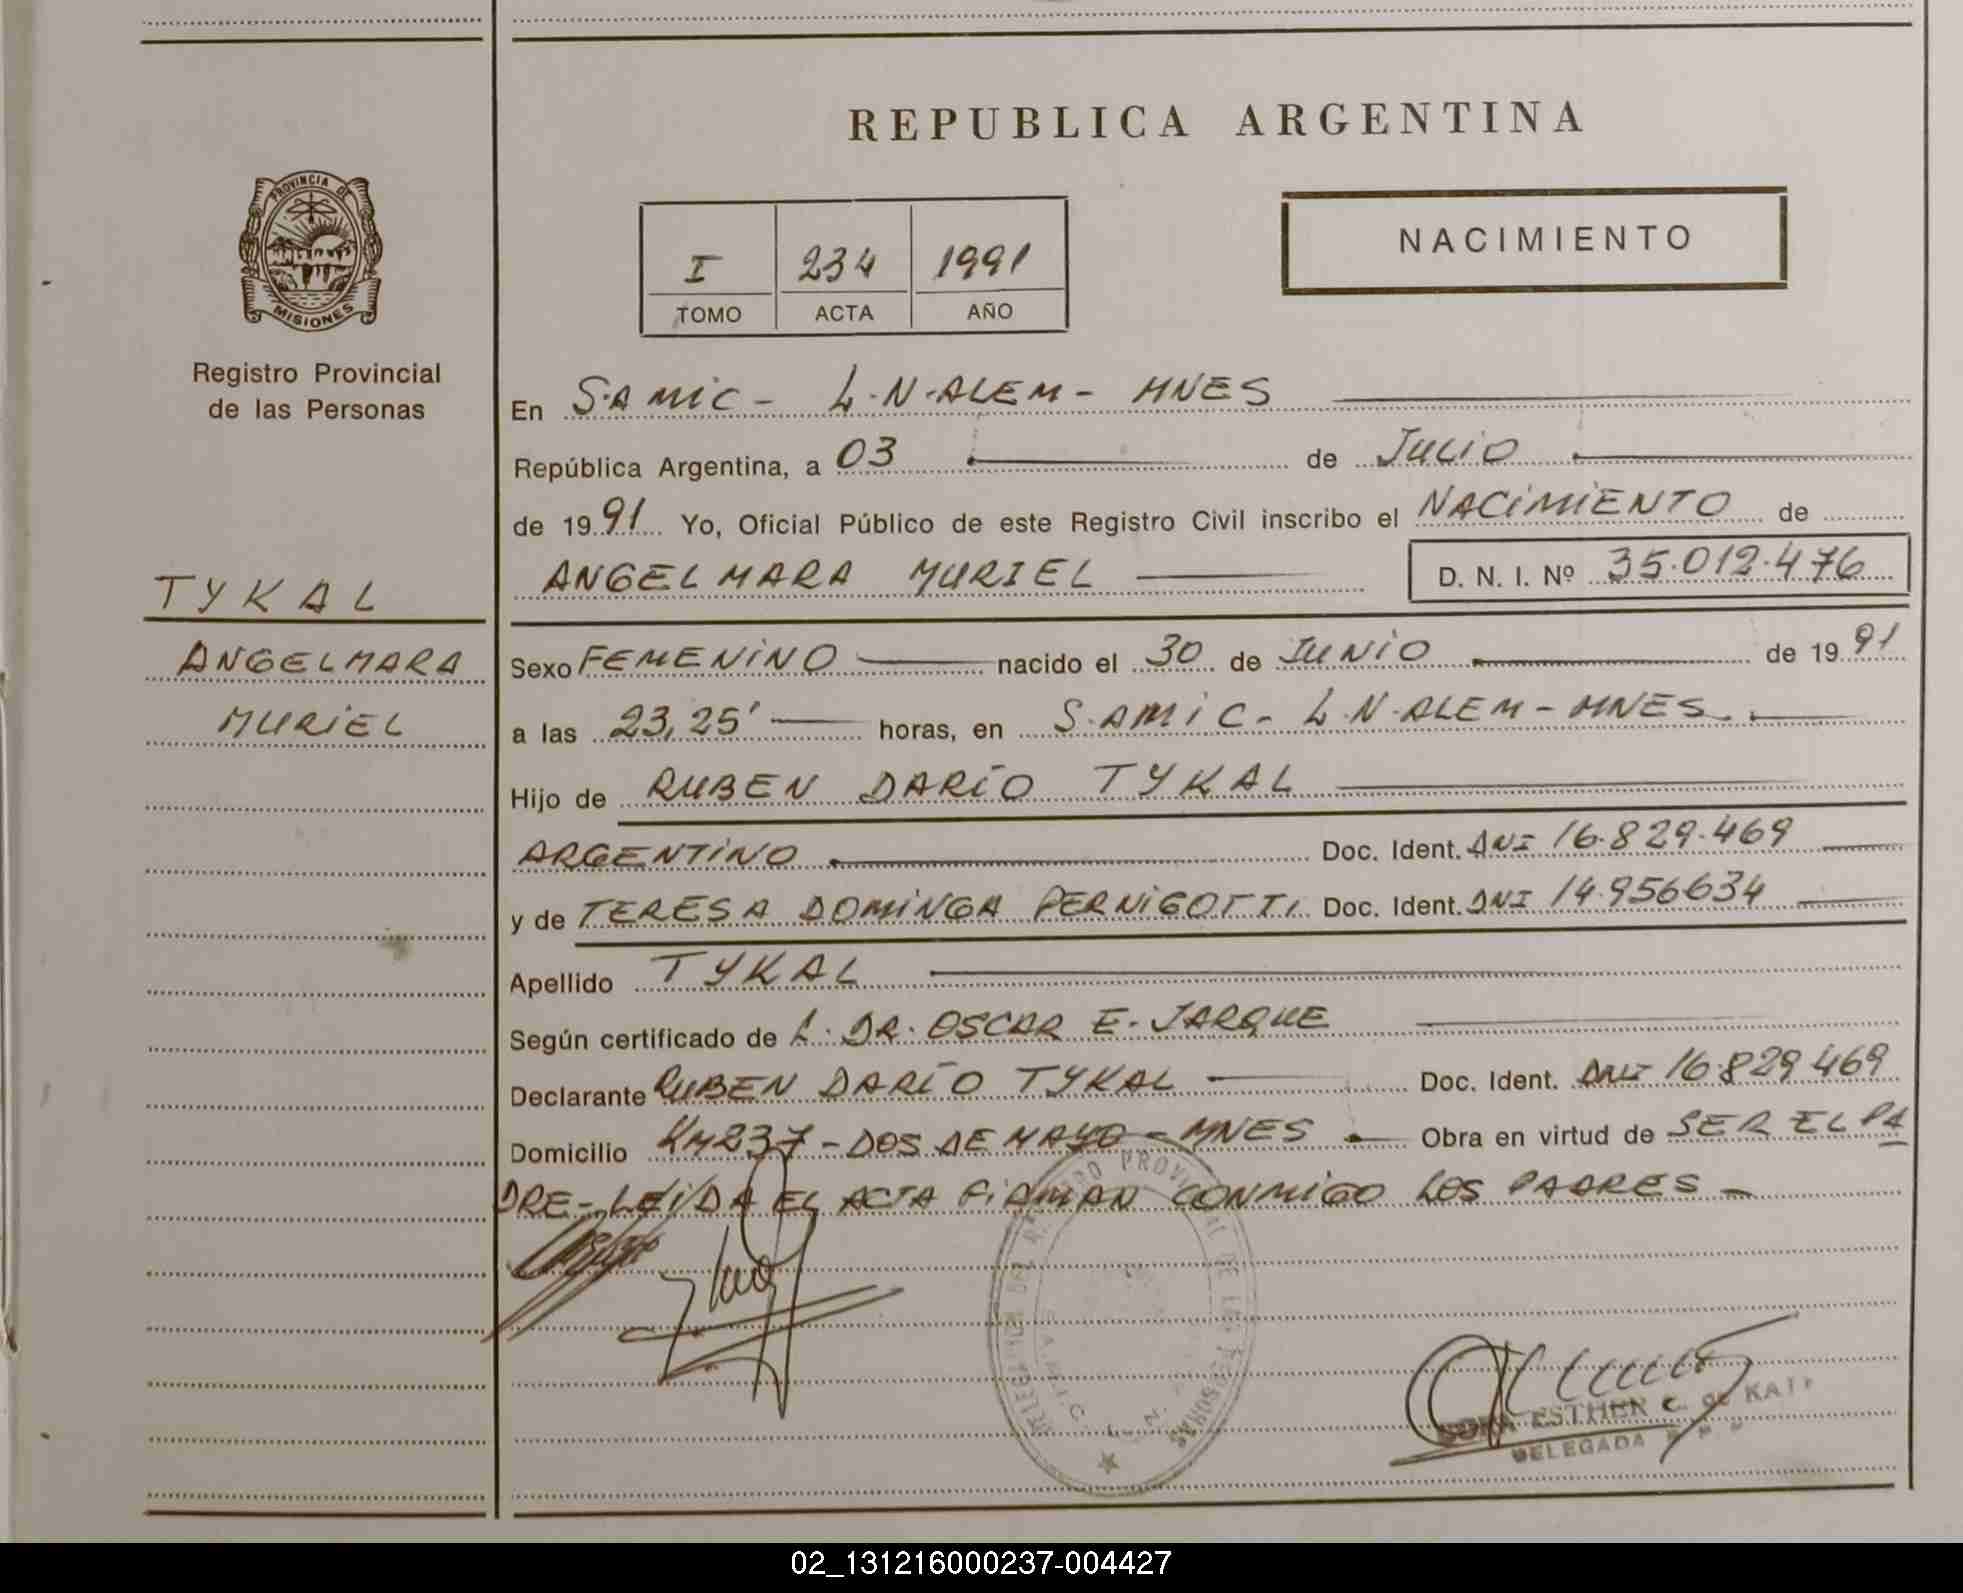 REPUBLICA ARGENTINA
PROVINCIA DE
MISIONES
Registro Provincial
de las Personas
TYKAL
ANGELMARA
MURIEL
I 234 1991
TOMO ACTA AÑO
NACIMIENTO
En S.AMIC- L.N.ALEM- MNES
República Argentina, a 03 de JULIO
de 1991 Yo, Oficial Público de este Registro Civil inscribo el NACIMIENTO de
ANGELMARA MURIEL D. N. I. Nº 35.012.476
Sexo FEMENINO nacido el 30 de JUNIO de 1991
a las 23,25' horas, en S.AMIC- L.N.ALEM-MNES
Hijo de RUBEN DARÍO TYKAL
ARGENTINO Doc. Ident. DNI 16.829.469
y de TERESA DOMINGA PERNIGOTTI Doc. Ident. DNI 14.956634
Apellido TYKAL
Según certificado de L. DR. OSCAR E. JARQUE
Declarante RUBEN DARÍO TYKAL Doc. Ident. DNI 16.829.469
Domicilio KM237-DOS DE MAYO-MNES Obra en virtud de SER EL PA
DRE- LEÍDA EL ACTA FIRMAN CONMIGO LOS PADRES-
PROVINCIAL DE LAS PERSONAS
S.A.M.I.C.
ESTHER C. de
DELEGADA
02_131216000237-004427